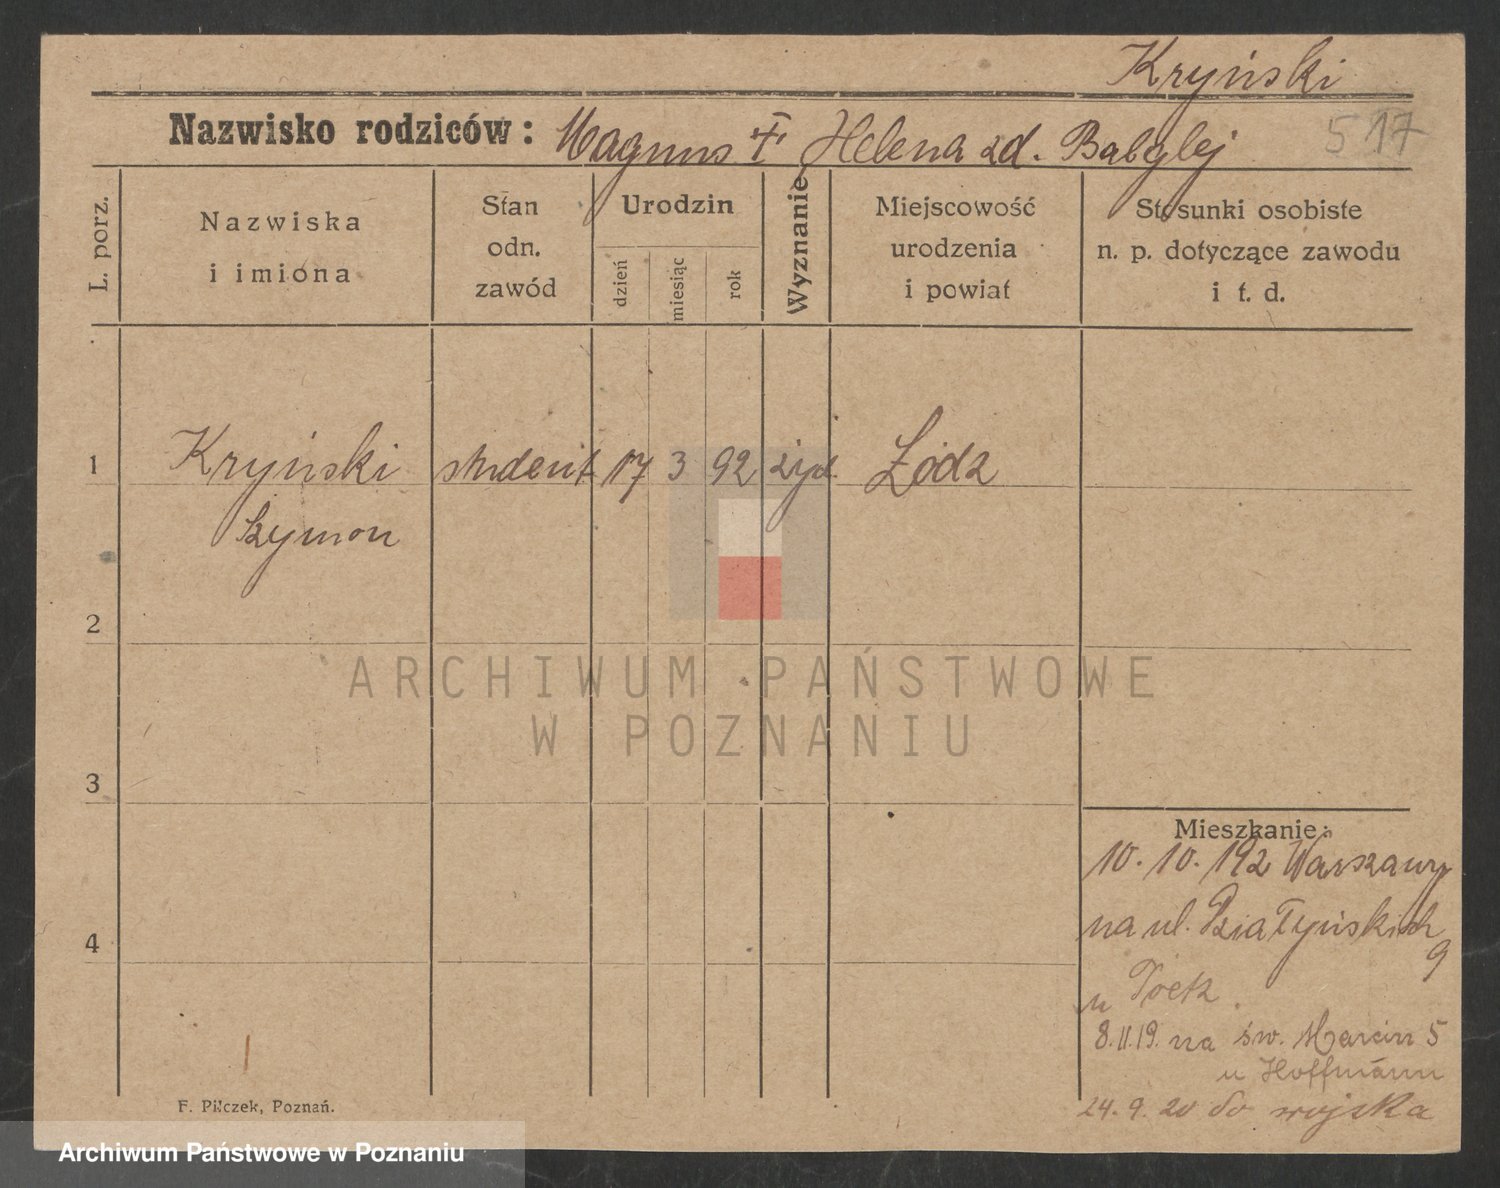 Kryński
Nazwisko rodziców: Magnus † Helena zd. Babylej
517
L. porz.
Nazwiska
i imiona
Stan
odn.
zawód
Urodzin
dzień
miesiąc
rok
Wyznanie
Miejscowość
urodzenia
i powiat
Stosunki osobiste
n. p. dotyczące zawodu
i t. d.
1 Kryński student 17 3 92 żyd. Łódz
Szymon
2
ARCHIWUM PAŃSTWOWE
W POZNANIU
3
Mieszkanie:
10.10.192 Warszawy
na ul. Działyńskich
9
4
u
8.11.19. na św. Marcin 5
u Hoffmann
24.9.20 do wojska
F. Pilczek, Poznań.
Archiwum Państwowe w Poznaniu